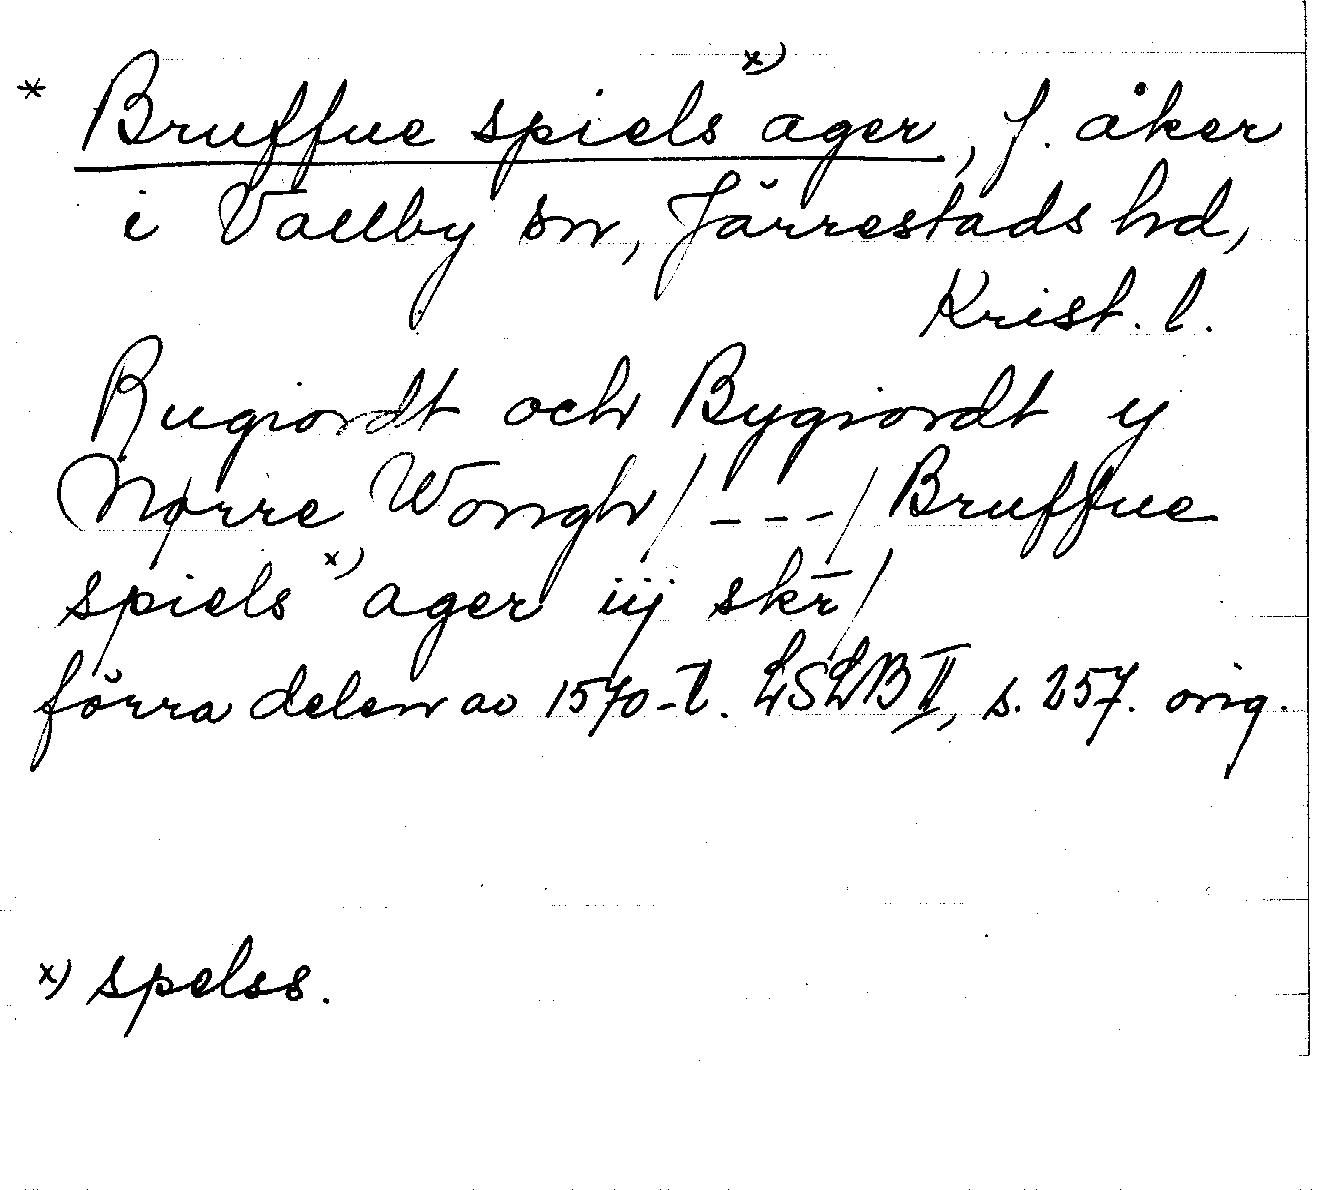 * Bruffue spiels x) ager, f. åker
i Vallby sn, Järrestads hd,
Krist. l.
Rugiordt och Bygiordt y
Nørre Wongh / - - - / Bruffue
spiels x) ager iij skr̄ /
förra delen av 1570-t. LSLB II, s. 257. orig.
x) spelss.